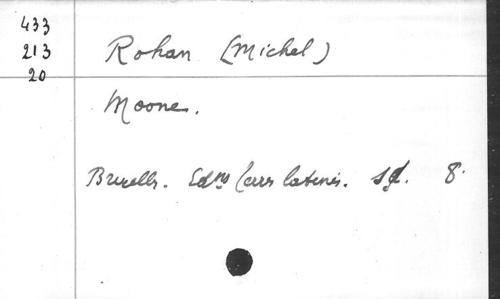 433
213
20
Rohan (Michel)
Moone.
Bruxelles. Edns latines. sd. 8.